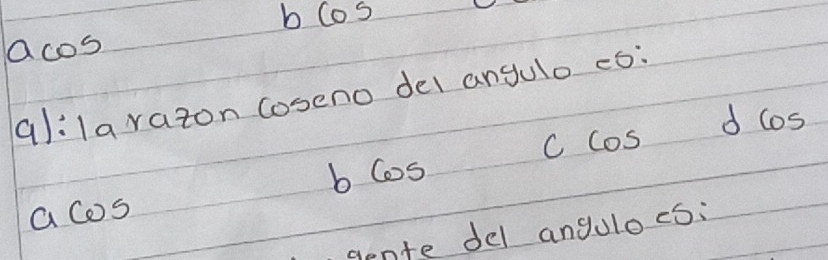 a cos b cos
9): la razon coseno del angulo es:
a cos b cos c cos d cos
gente del angulo es: